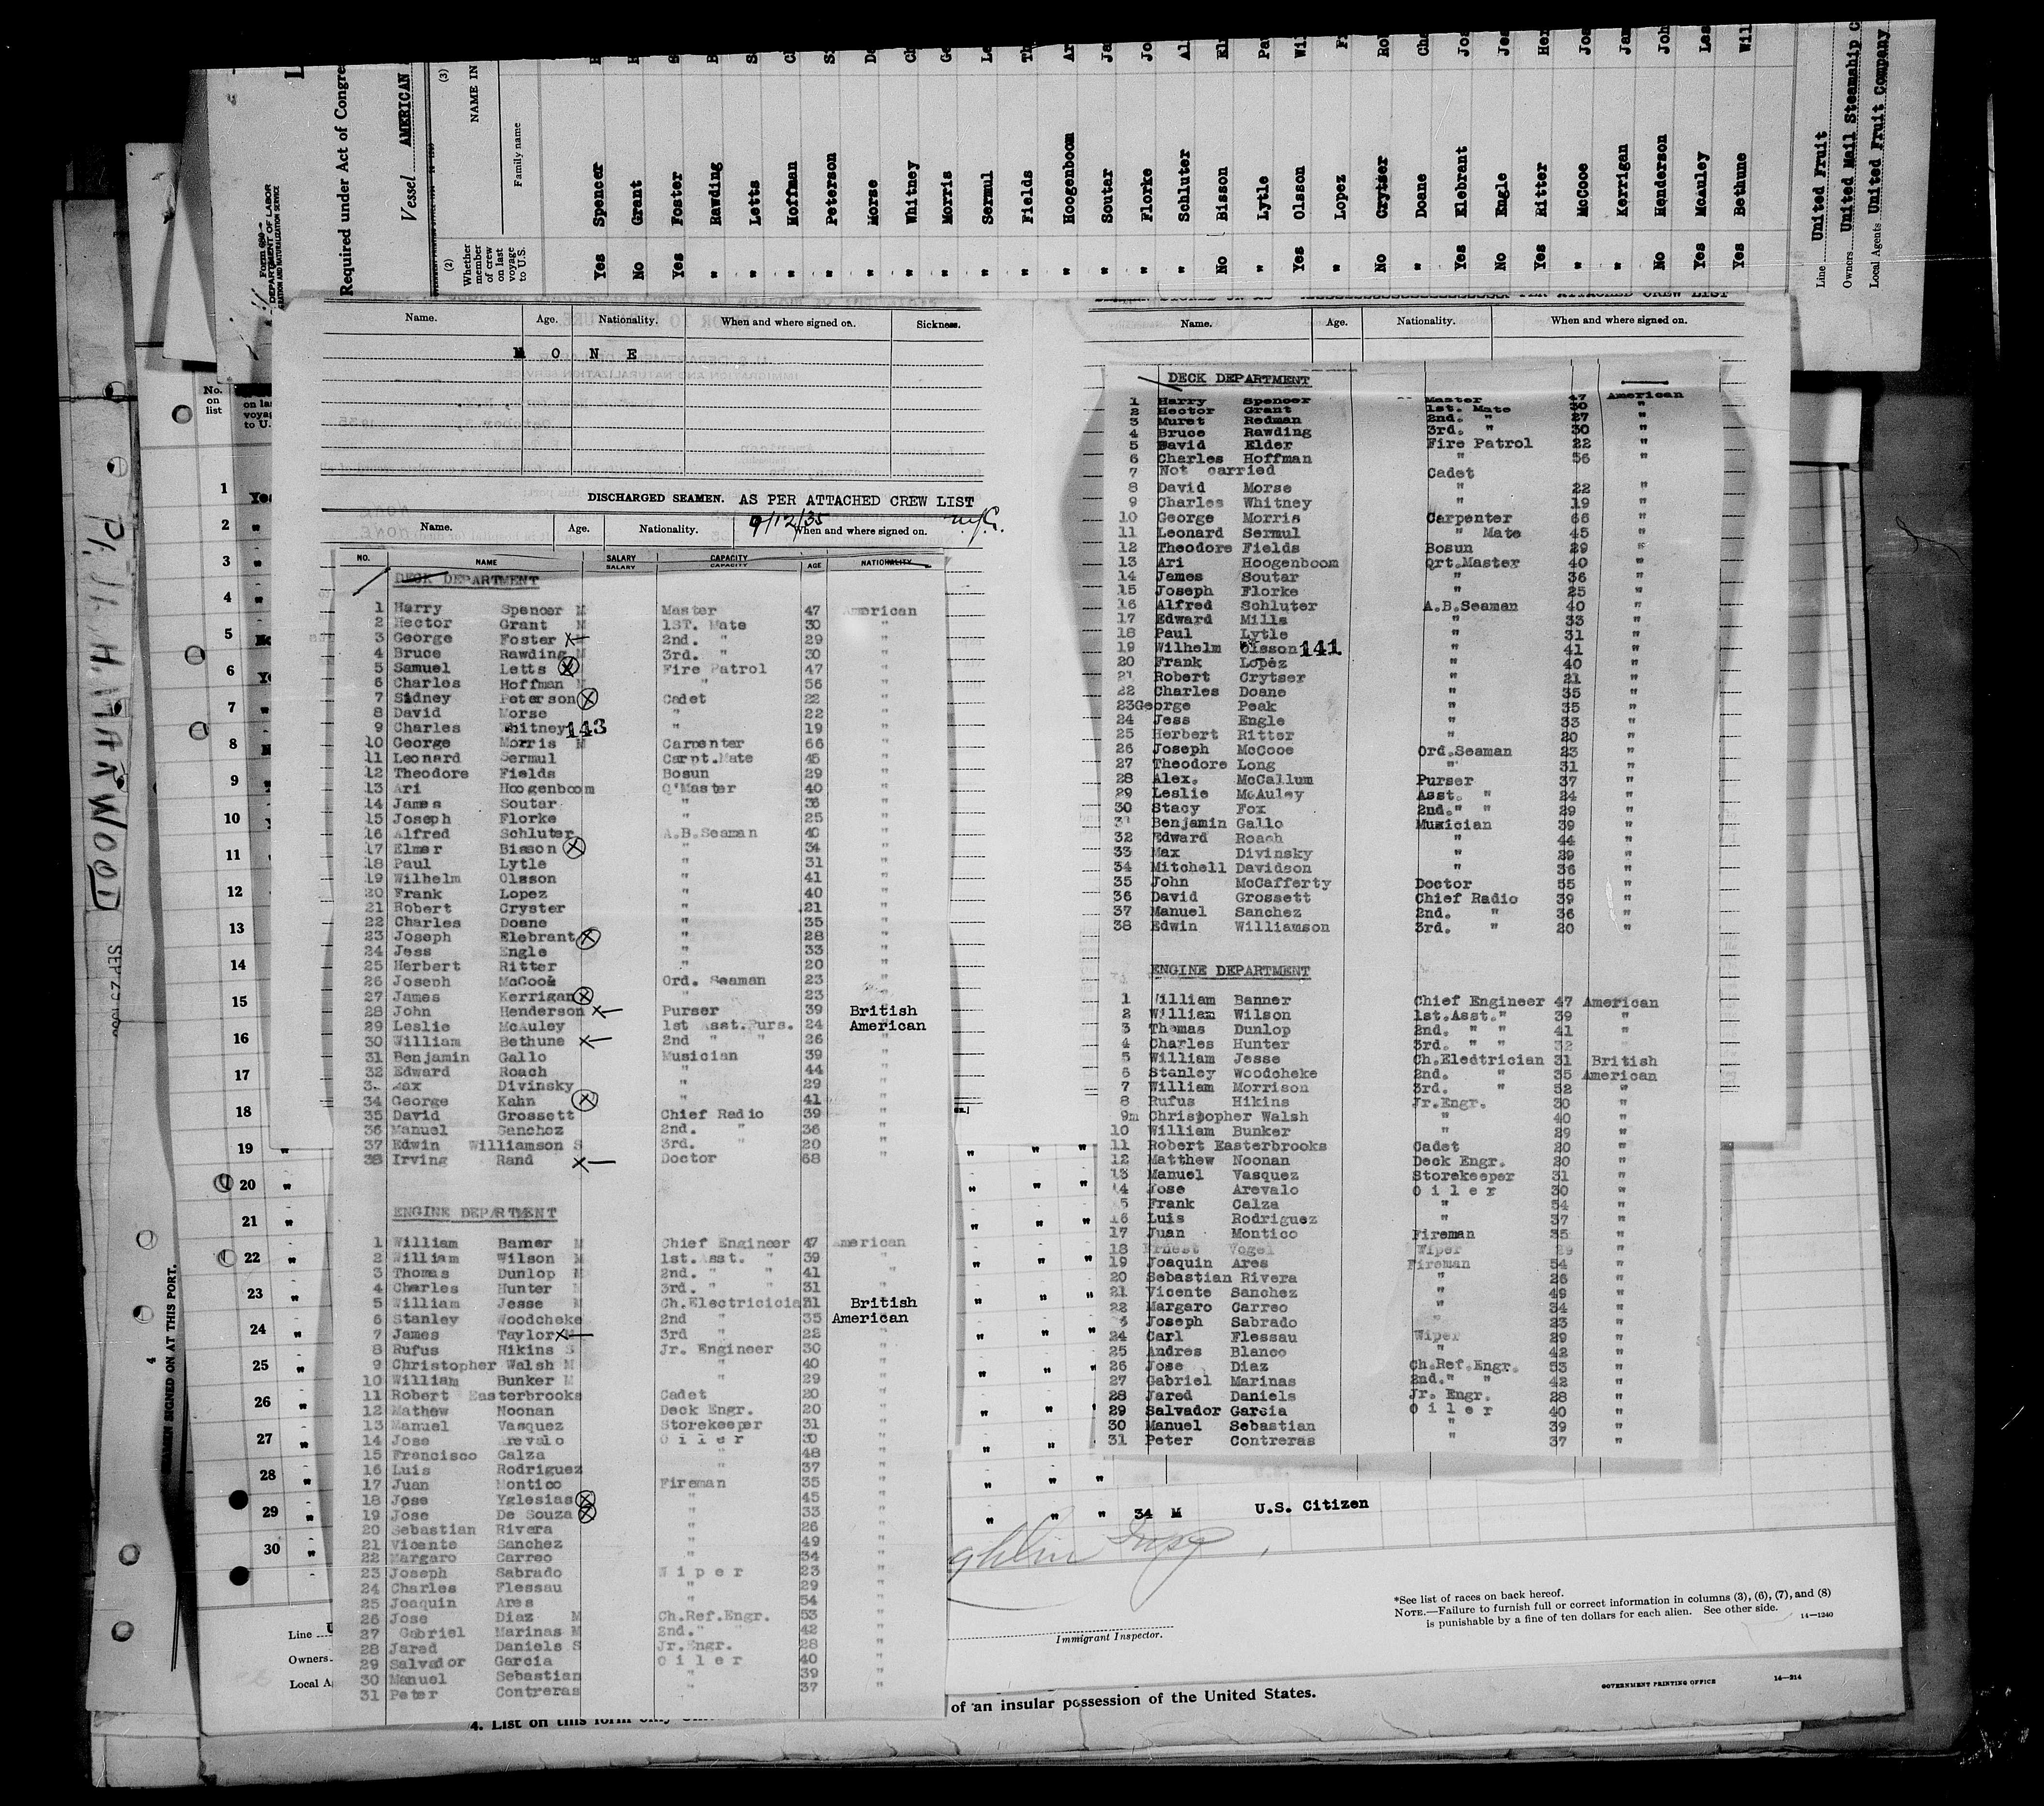 Form 680
DEPARTMENT OF LABOR
Required under Act of Congre
Vessel AMERICAN
(3)
NAME IN
Family name
(2)
Whether
member
of crew
on last
voyage
to U.S.
Yes Spencer
No Grant
Yes Foster
" Rawding
" Letts
" Hoffman
" Peterson
" Morse
" Whitney
" Morris
" Sermul
" Fields
" Hoogenboom
" Soutar
" Florke
" Schluter
No Bisson
" Lytle
Yes Olsson
" Lopez
No Crytser
" Doane
Yes Elebrant
No Engle
Yes Ritter
" McCooe
" Kerrigan
No Henderson
Yes McAuley
Yes Bethune
Line United Fruit
Owners United Mail Steamship C
Local Agents United Fruit Company
Name. Age. Nationality. When and where signed on. Sickness.
N O N E
DISCHARGED SEAMEN. AS PER ATTACHED CREW LIST
9/12/35
Name. Age. Nationality. When and where signed on.
NO. NAME SALARY CAPACITY AGE NATIONALITY
SALARY CAPACITY
DECK DEPARTMENT
1 Harry Spencer M Master 47 American
2 Hector Grant M 1ST. Mate 30 "
3 George Foster X— 2nd. " 29 "
4 Bruce Rawding M 3rd. " 30 "
5 Samuel Letts X Fire Patrol 47 "
6 Charles Hoffman M " 56 "
7 Sidney Peterson X Cadet 22 "
8 David Morse " 22 "
9 Charles Whitney 143 " 19 "
10 George Morris M Carpenter 66 "
11 Leonard Sermul Carpt.Mate 45 "
12 Theodore Fields Bosun 29 "
13 Ari Hoogenboom Q'Master 40 "
14 James Soutar " 36 "
15 Joseph Florke " 25 "
16 Alfred Schluter A.B.Seaman 40 "
17 Elmer Bisson X " 34 "
18 Paul Lytle " 31 "
19 Wilhelm Olsson " 41 "
20 Frank Lopez " 40 "
21 Robert Cryster " 21 "
22 Charles Doane " 35 "
23 Joseph Elebrant X " 28 "
24 Jess Engle " 33 "
25 Herbert Ritter " 20 "
26 Joseph McCooe Ord. Seaman 23 "
27 James Kerrigan X " 23 "
28 John Henderson X— Purser 39 British
29 Leslie McAuley 1st Asst.Purs. 24 American
30 William Bethune X— 2nd " " 26 "
31 Benjamin Gallo Musician 39 "
32 Edward Roach " 44 "
3 Max Divinsky " 29 "
34 George Kahn X " 41 "
35 David Grossett Chief Radio 39 "
36 Manuel Sanchez 2nd. " 36 "
37 Edwin Williamson S 3rd. " 20 "
38 Irving Rand X— Doctor 68 "
ENGINE DEPARTMENT
1 William Banner M Chief Engineer 47 American
2 William Wilson M 1st.Asst. " 39 "
3 Thomas Dunlop M 2nd. " " 41 "
4 Charles Hunter M 3rd. " " 31
5 William Jesse M Ch.Electricician 31 British
6 Stanley Woodcheke 2nd " 35 American
7 James Taylor X— 3rd " 22 "
8 Rufus Hikins S Jr. Engineer 30 "
9 Christopher Walsh M " 40 "
10 William Bunker M " 29 "
11 Robert Easterbrooks Cadet 20 "
12 Mathew Noonan Deck Engr. 20 "
13 Manuel Vasquez Storekeeper 31 "
14 Jose Arevalo O i l e r 30 "
15 Francisco Calza " 48 "
16 Luis Rodriguez " 37 "
17 Juan Montico Fireman 35 "
18 Jose Yglesias X " 45 "
19 Jose De Souza X " 33 "
20 Sebastian Rivera " 26 "
21 Vicente Sanchez " 49 "
22 Margaro Carreo " 34 "
23 Joseph Sabrado W i p e r 23 "
24 Charles Flessau " 29 "
25 Joaquin Ares " 54 "
26 Jose Diaz M Ch.Ref.Engr. 53 "
27 Gabriel Marinas M 2nd." " 42 "
28 Jared Daniels S Jr.Engr. 28 "
29 Salvador Garcia O i l e r 40 "
30 Manuel Sebastian " 39 "
31 Peter Contreras " 37 "
Name. Age. Nationality. When and where signed on.
DECK DEPARTMENT
1 Harry Spencer Master 47 American
2 Hector Grant 1st. Mate 30 "
3 Muret Redman 2nd. " 27 "
4 Bruce Rawding 3rd. " 30 "
5 David Elder Fire Patrol 22 "
6 Charles Hoffman " 56 "
7 Not carried Cadet
8 David Morse " 22 "
9 Charles Whitney " 19 "
10 George Morris Carpenter 66 "
11 Leonard Sermul " Mate 45 "
12 Theodore Fields Bosun 29 "
13 Ari Hoogenboom Qrt.Master 40 "
14 James Soutar " 36 "
15 Joseph Florke " 25 "
16 Alfred Schluter A.B.Seaman 40 "
17 Edward Mills " 33 "
18 Paul Lytle " 31 "
19 Wilhelm Olsson 141 " 41 "
20 Frank Lopez " 40 "
21 Robert Crytser " 21 "
22 Charles Doane " 35 "
23George Peak " 35 "
24 Jess Engle " 33 "
25 Herbert Ritter " 20 "
26 Joseph McCooe Ord.Seaman 23 "
27 Theodore Long " 31 "
28 Alex. McCallum Purser 37 "
29 Leslie McAuley Asst. " 24 "
30 Stacy Fox 2nd." " 29 "
31 Benjamin Gallo Musician 39 "
32 Edward Roach " 44 "
33 Max Divinsky " 29 "
34 Mitchell Davidson " 36 "
35 John McCafferty Doctor 55 "
36 David Grossett Chief Radio 39 "
37 Manuel Sanchez 2nd. " 36 "
38 Edwin Williamson 3rd. " 20 "
ENGINE DEPARTMENT
1 William Banner Chief Engineer 47 American
2 William Wilson 1st.Asst." 39 "
3 Thomas Dunlop 2nd. " " 41 "
4 Charles Hunter 3rd. " " 32 "
5 William Jesse Ch.Eledtrician 31 British
6 Stanley Woodcheke 2nd. " 35 American
7 William Morrison 3rd. " 52 "
8 Rufus Hikins Jr.Engr. 30 "
9m Christopher Walsh " 40 "
10 William Bunker " 29 "
11 Robert Easterbrooks Cadet 20 "
12 Matthew Noonan Deck Engr. 20 "
13 Manuel Vasquez Storekeeper 31 "
14 Jose Arevalo O i l e r 30 "
5 Frank Calza " 54 "
16 Luis Rodriguez " 37 "
17 Juan Montico Fireman 35 "
18 Ernest Vogel Wiper 29 "
19 Joaquin Ares Fireman 54 "
20 Sebastian Rivera " 26 "
21 Vicente Sanchez " 49 "
22 Margaro Carreo " 34 "
3 Joseph Sabrado " 23 "
24 Carl Flessau Wiper 29 "
25 Andres Blanco " 42 "
26 Jose Diaz Ch.Ref.Engr. 53 "
27 Gabriel Marinas 2nd." " 42 "
28 Jared Daniels Jr. Engr. 28 "
29 Salvador Garcia O i l e r 40 "
30 Manuel Sebastian " 39 "
31 Peter Contreras " 37 "
" " 34 M U.S. Citizen
Immigrant Inspector.
*See list of races on back hereof.
NOTE.—Failure to furnish full or correct information in columns (3), (6), (7), and (8)
is punishable by a fine of ten dollars for each alien. See other side. 14—1240
GOVERNMENT PRINTING OFFICE 14—214
of an insular possession of the United States.
4. List on this form only
No.
on
list
on las
voyag
to U.
1 Yes
2 "
3 "
4 "
5
6
7 "
8
9 "
10
11
12
13
14
15
16
17
18
19 "
20 "
21 "
22 "
23 "
24 "
25 "
26 "
27 "
28 "
29 "
30 "
Line
Owners
Local A
SEAMEN SIGNED ON AT THIS PORT.
4